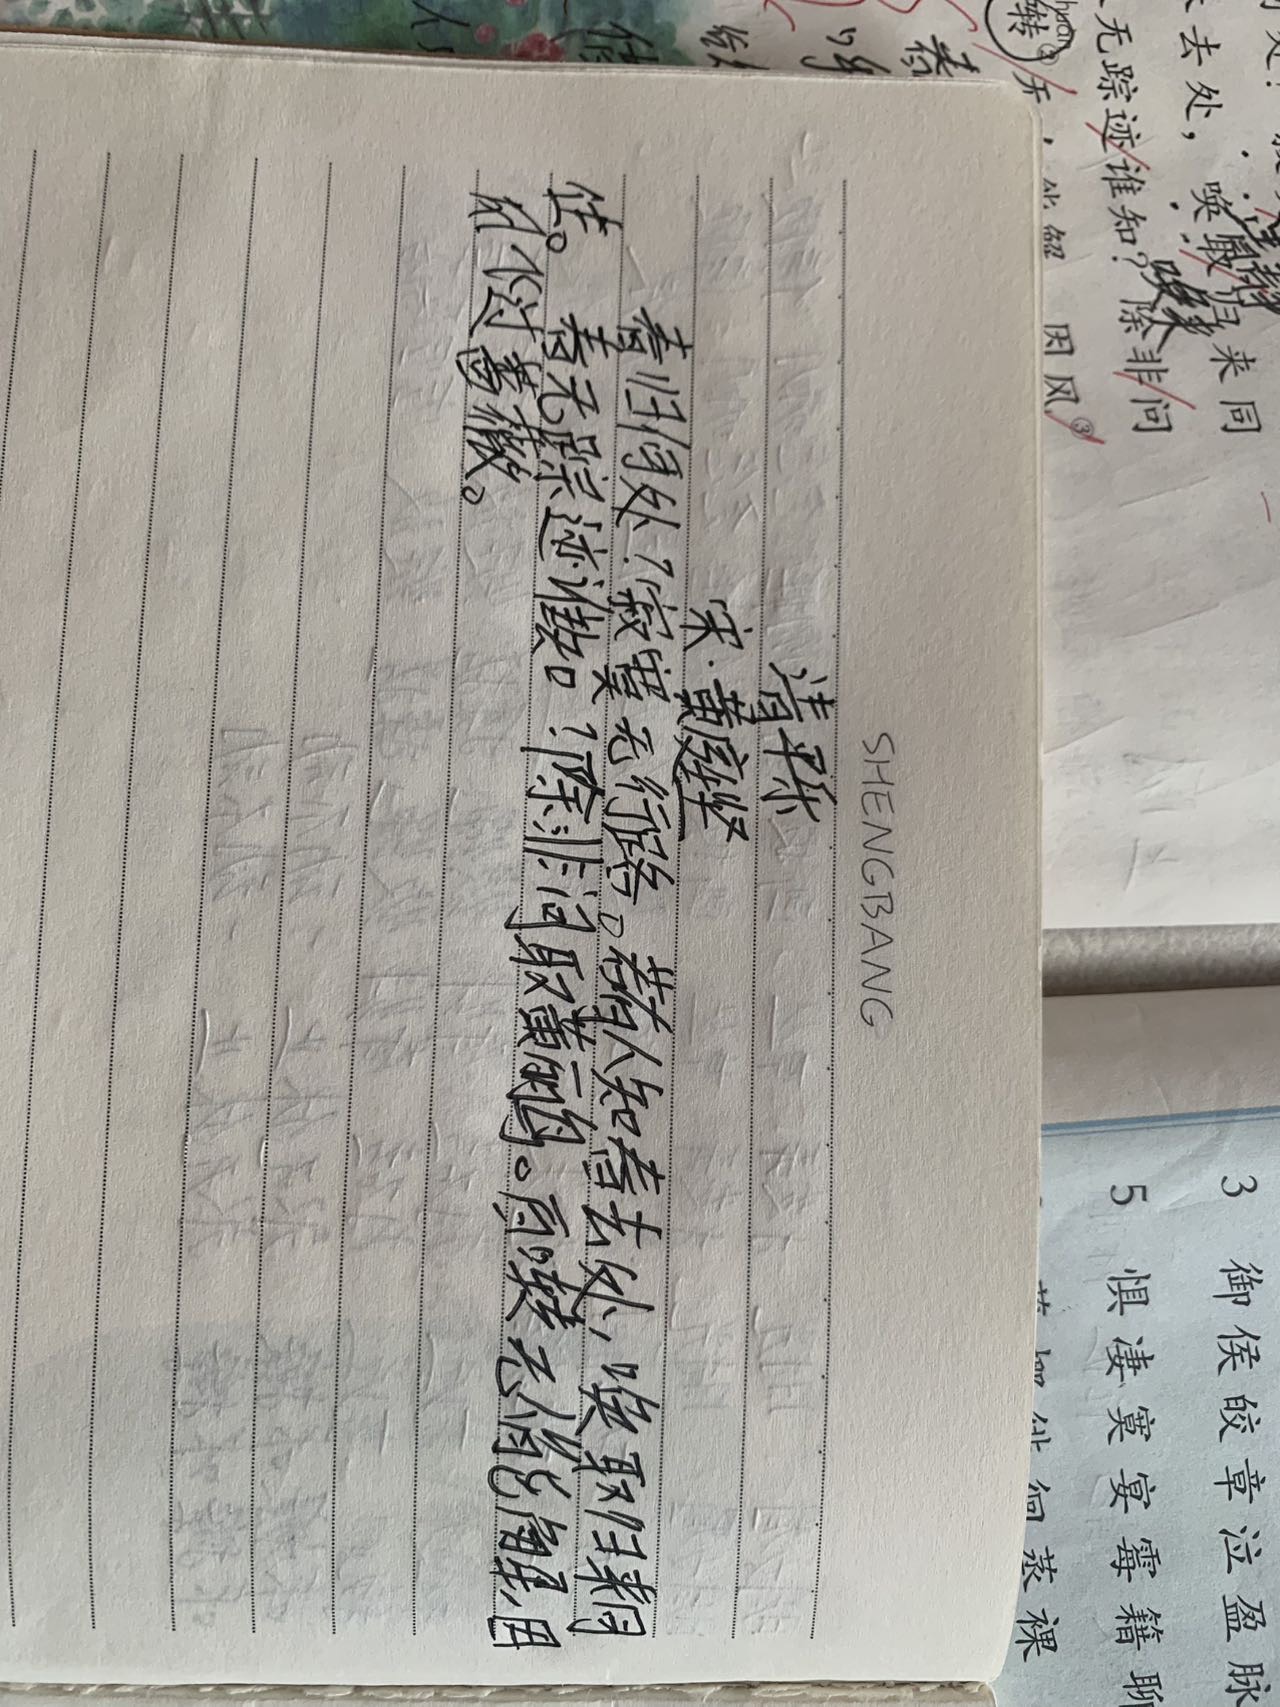 去处，唤取归来同
无踪迹谁知？除非问
因风③
3 御侯皎章泣盈脉
5 惧凄寞宴霉籍聊
徊蒸裸
SHENGBANG
清平乐
宋·黄庭坚
春归何处？寂寞无行路。若有人知春去处，唤取归来同
住。春无踪迹谁知？除非问取黄鹂。百啭无人能解，因
风飞过蔷薇。